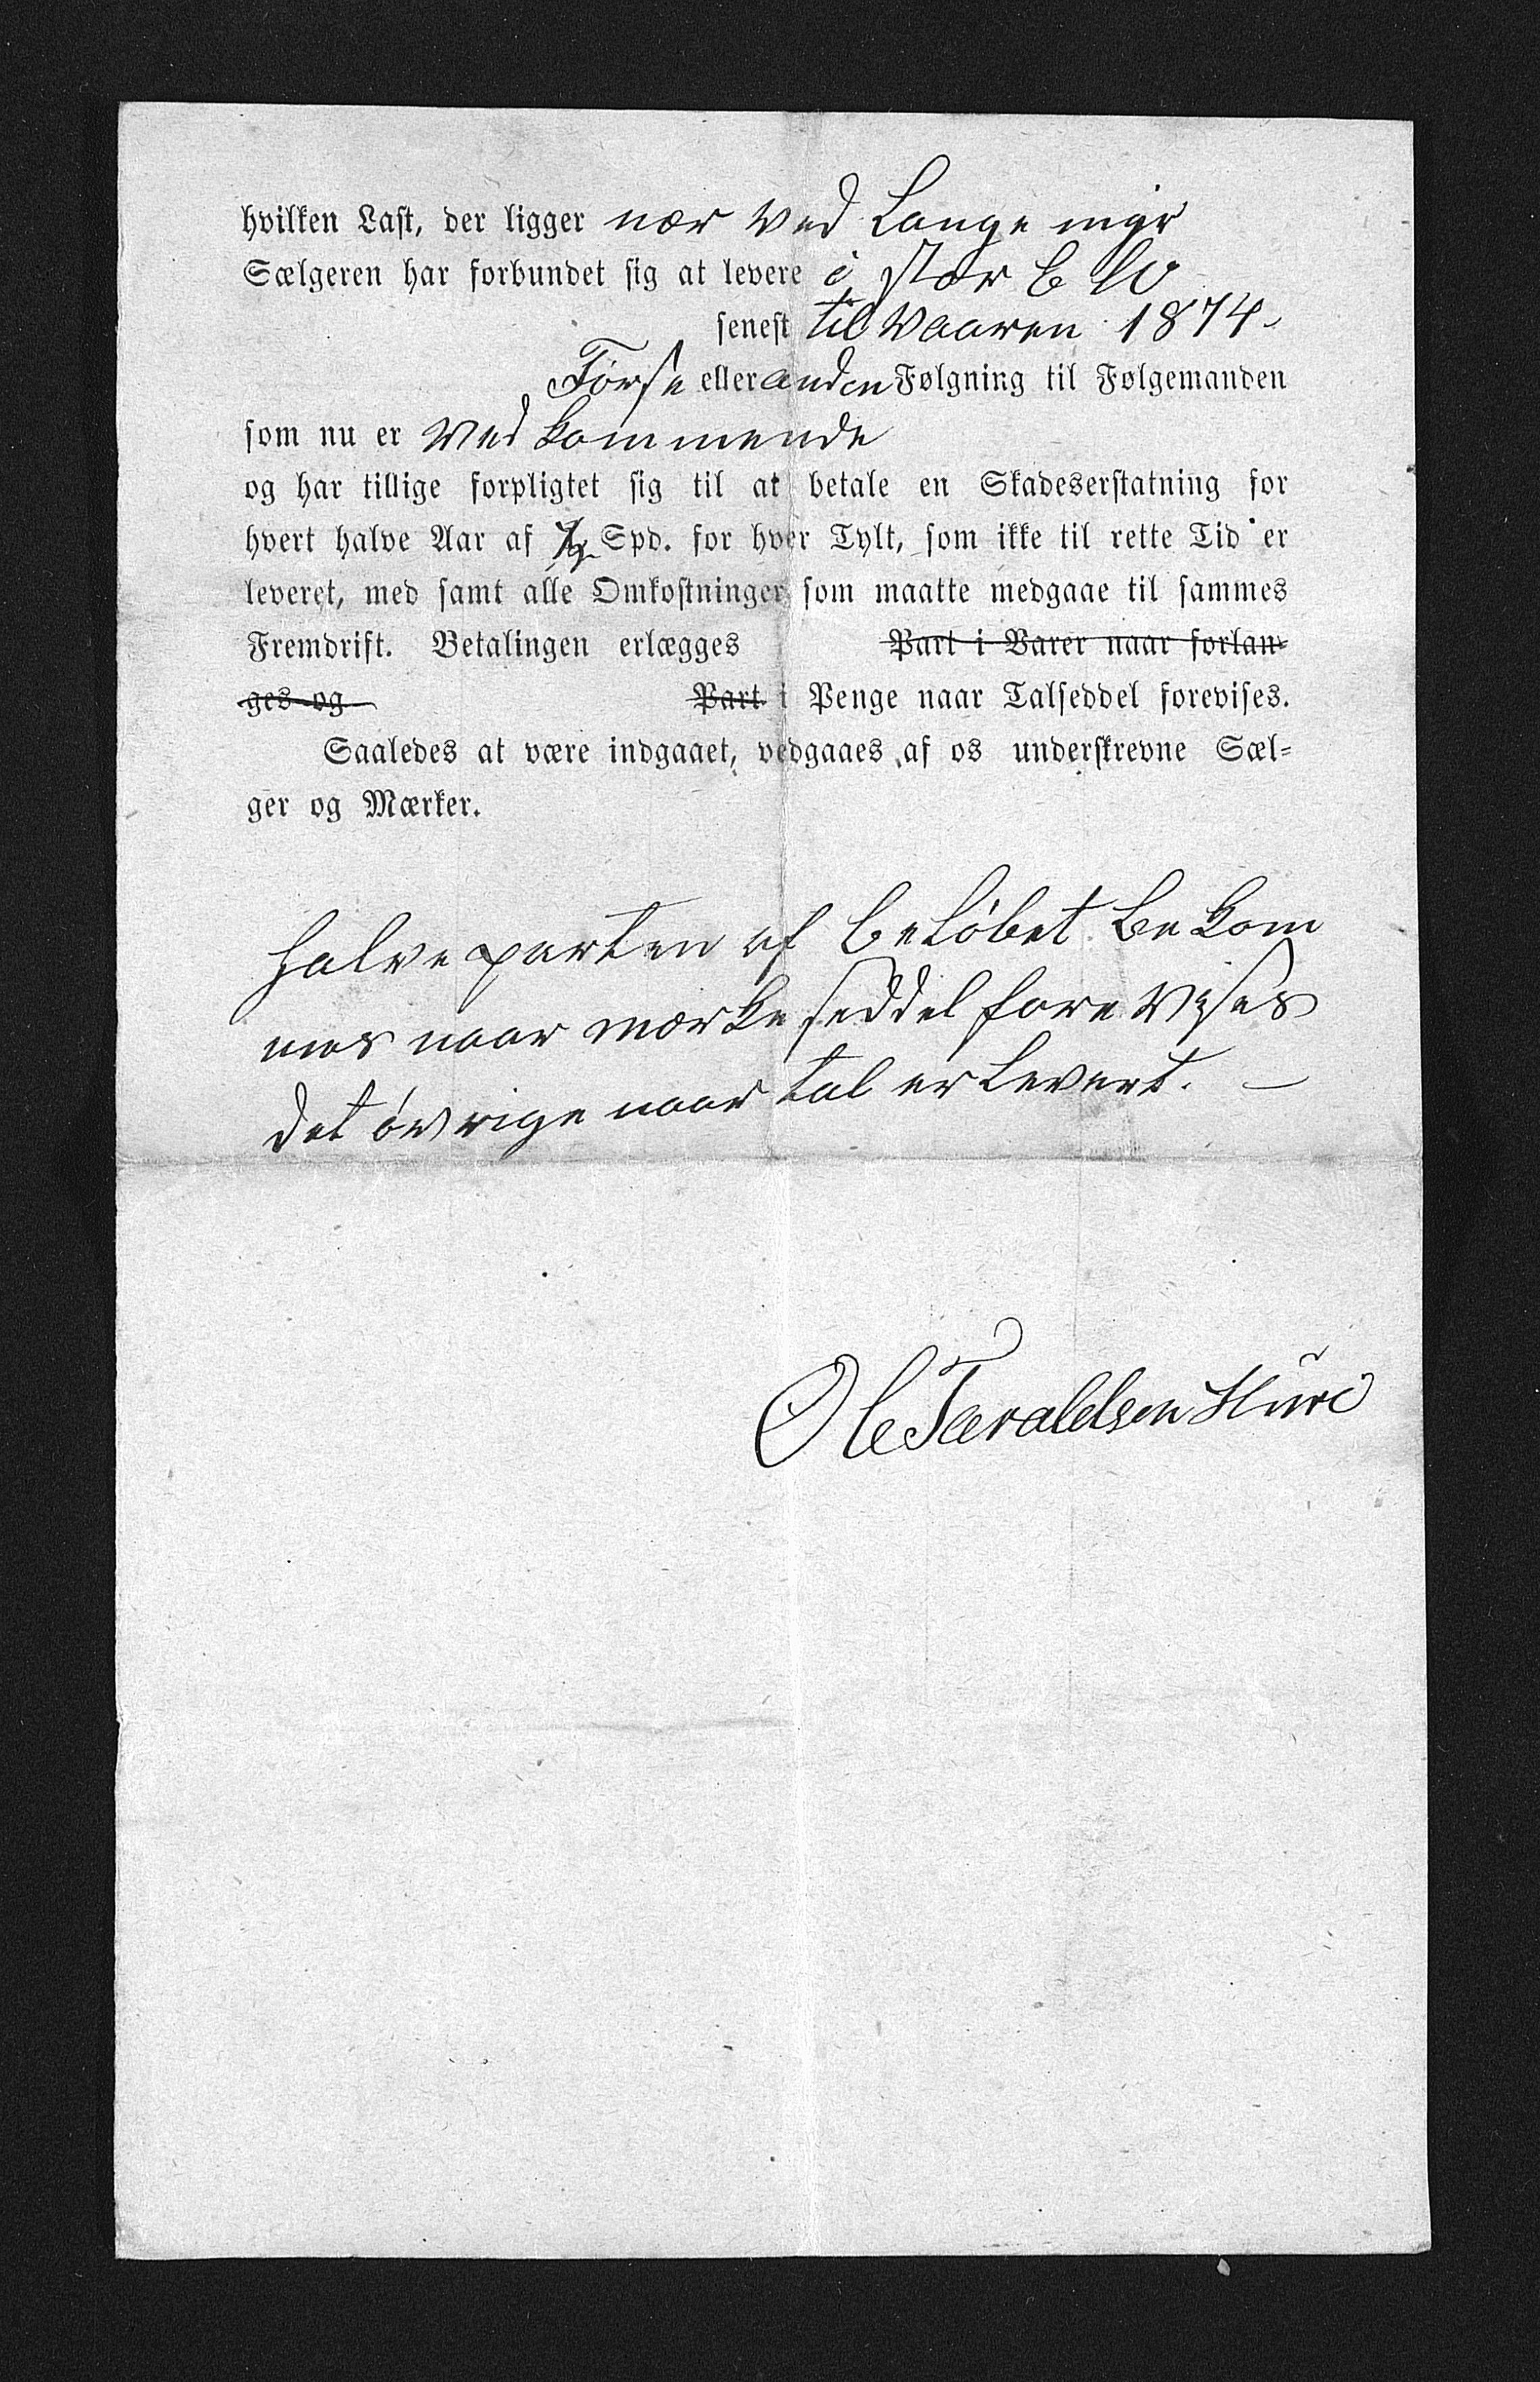 hvilken Last, der ligger nær ved Lange myr
Sælgeren har forbundet sig at levere i stor Elv
senest til Vaaren 1874.
Første eller anden Følgning til Følgemanden
som nu er Vedkommende
og har tillige forpligtet sig til at betale en Skadeserstatning for
hvert halve Aar af ½ Spd. for hver Tylt, som ikke til rette Tid er
leveret, med samt alle Omkostninger som maatte medgaae til sammes
Fremdrift. Betalingen erlægges Part i Varer naar forlan-
ges og Part i Penge naar Talseddel forevises.
Saaledes at være indgaaet, vedgaaes af os underskrevne Sæl-
ger og Mærker.
Halve parten af beløbet be kom
mes naar mærke seddel fore vises
det øvrige naar tal er Levert. —
Ole Taraldsen